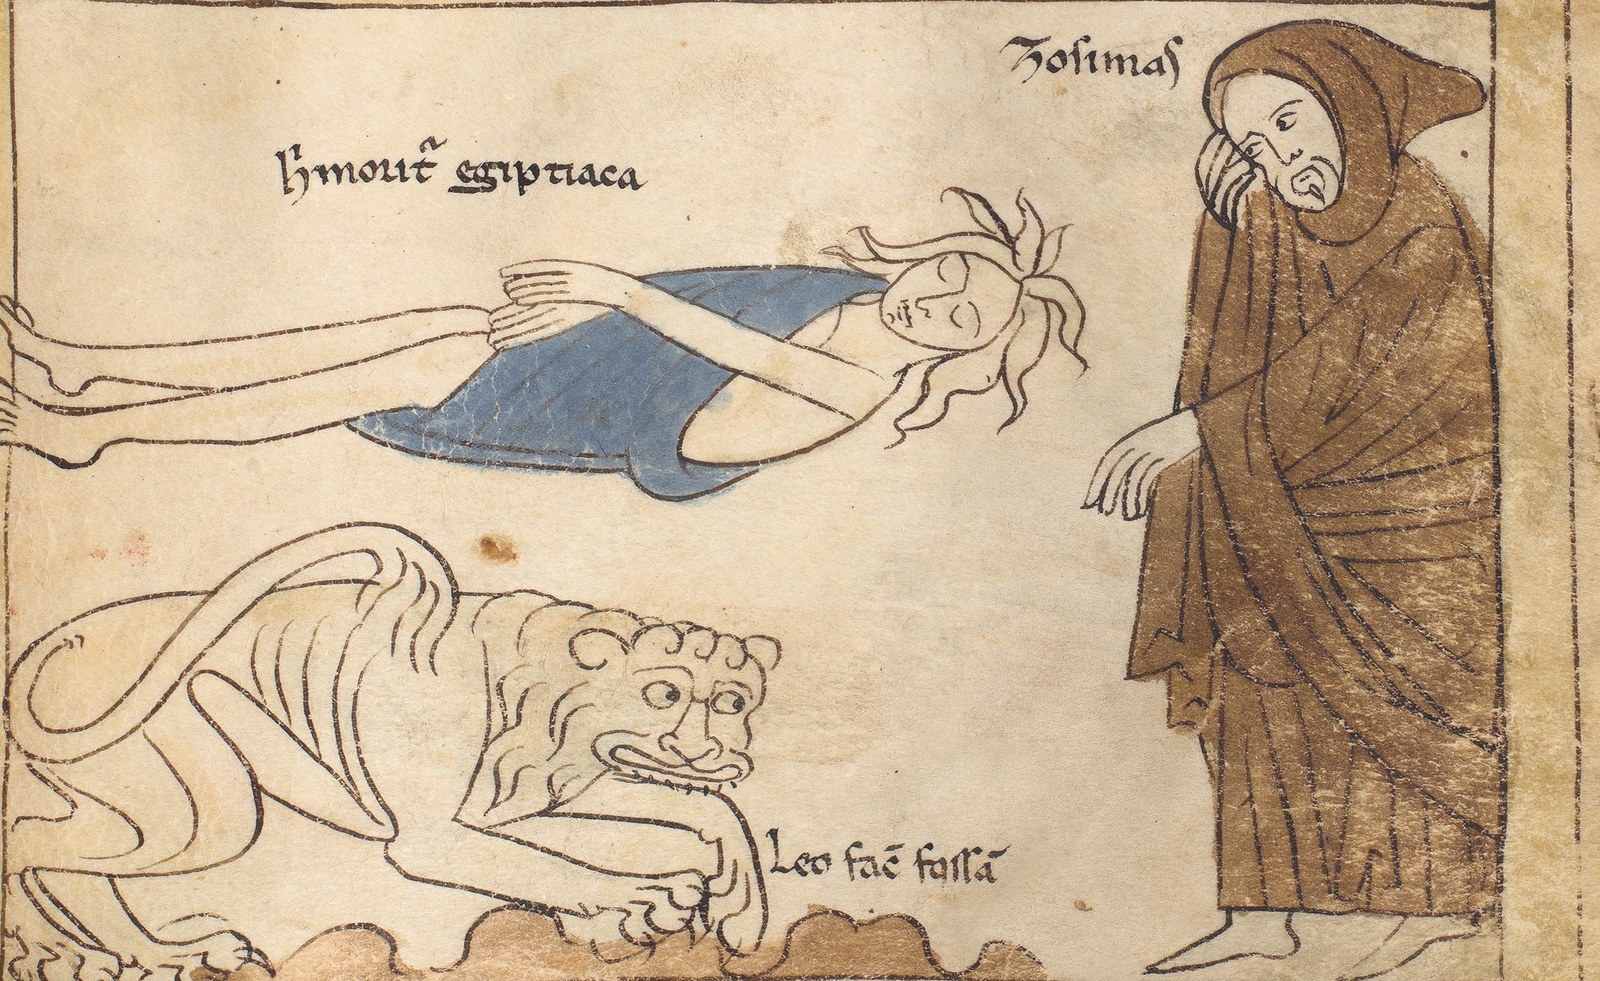 Zosimas
h̄ morit᷑ egiptiaca
Leo fac̄ fossā